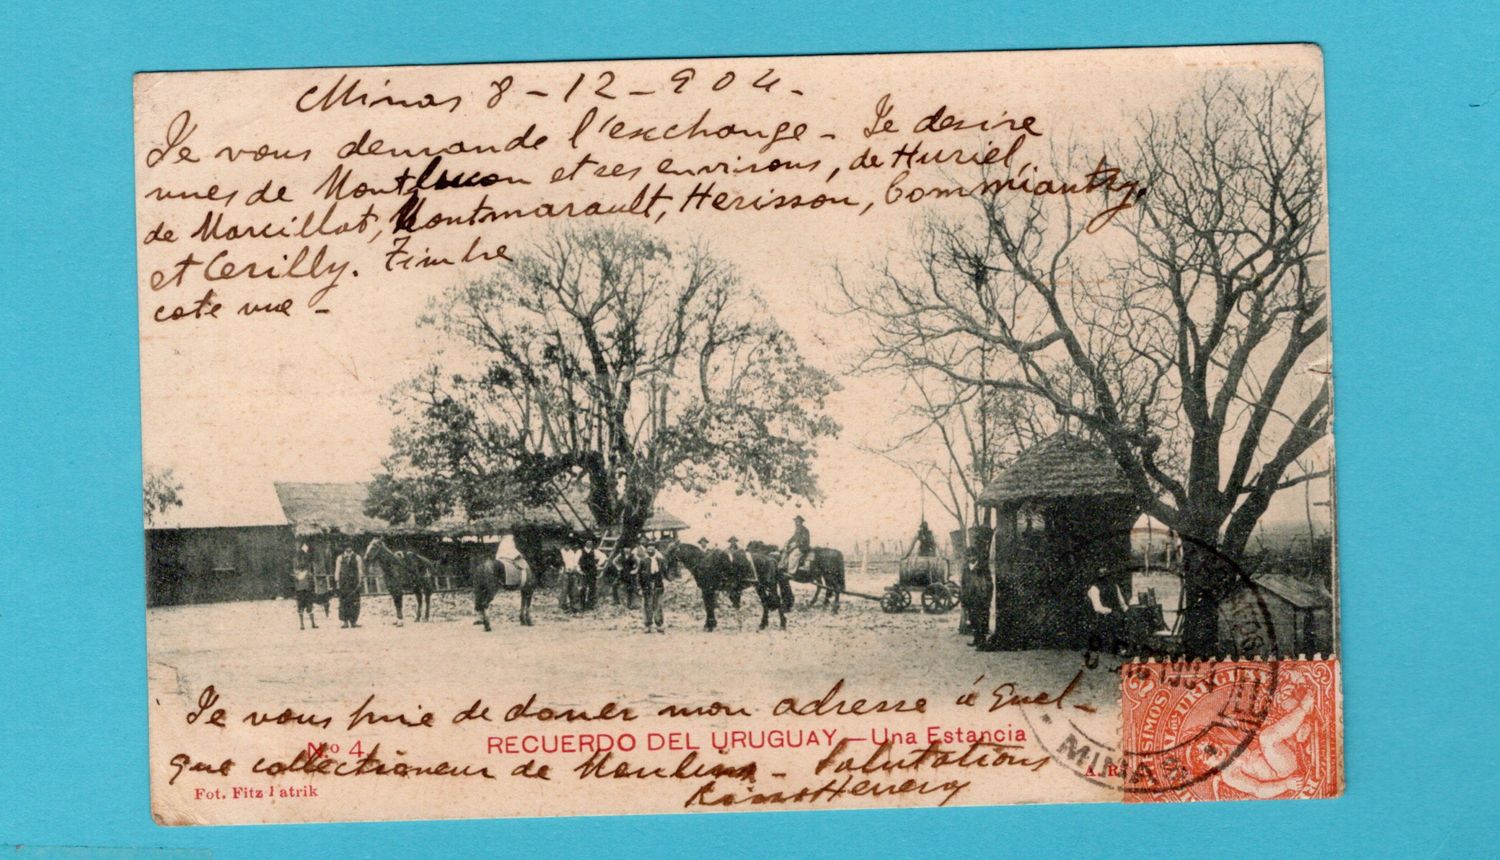 Minas 8-12-904-
Je vous demande l'exchange - Je desire
vues de Montlucon et ses environs, de Huriel,
de Marcillat, Montmarault, Herisson, Commentry,
et Cerilly. Timbre
cote vue -
Je vous prie de doner mon adresse á Quel-
No 4
RECUERDO DEL URUGUAY.—Una Estancia
que collectioneur de Moulins - Salutations
Herrera
Fot. Fitz Patrik
MINAS